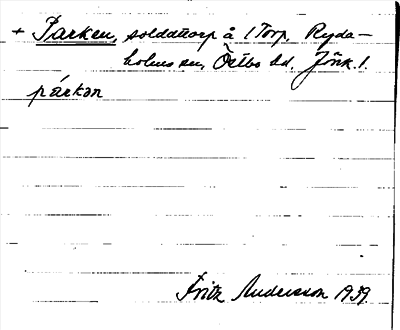 + Parken, soldattorp å 1 Torp, Ryda-
holms sn, Östbo hd, Jönk. l.
párkən
Fritz Andersson 1939.